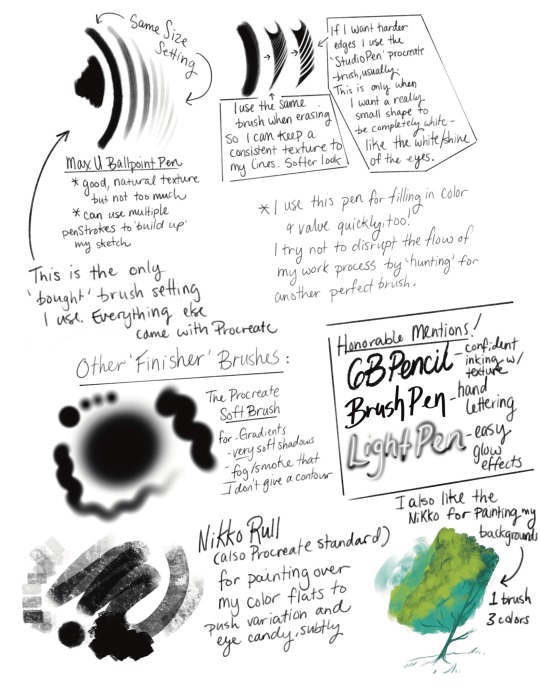 Same Size
Setting
If I want harder
edges I use the
'Studio Pen' procreate
brush, usually.
This is only when
I want a really
small shape to
be completely white -
like the white/shine
of the eyes.
I use the same
brush when erasing
So I can keep a
consistent texture to
my lines. Softer look
Max U Ballpoint Pen
* good, natural texture
but not too much
* can use multiple
penstrokes to 'build up'
my sketch
* I use this pen for filling in color
& value quickly, too!
I try not to disrupt the flow of
my work process by 'hunting' for
another perfect brush.
This is the only
'bought' brush setting
I use. Everything else
came with Procreate
Honorable Mentions!
6B Pencil - confident
inking w/
texture
Brush Pen - hand
lettering
Light Pen - easy
glow
effects
Other 'Finisher' Brushes:
The Procreate
Soft Brush
for - Gradients
- very soft shadows
- fog/smoke that
I don't give a contour
Nikko Rull
(also Procreate standard)
for painting over
my color flats to
push variation and
eye candy, subtly
I also like the
Nikko for painting my
backgrounds
1 brush
3 colors